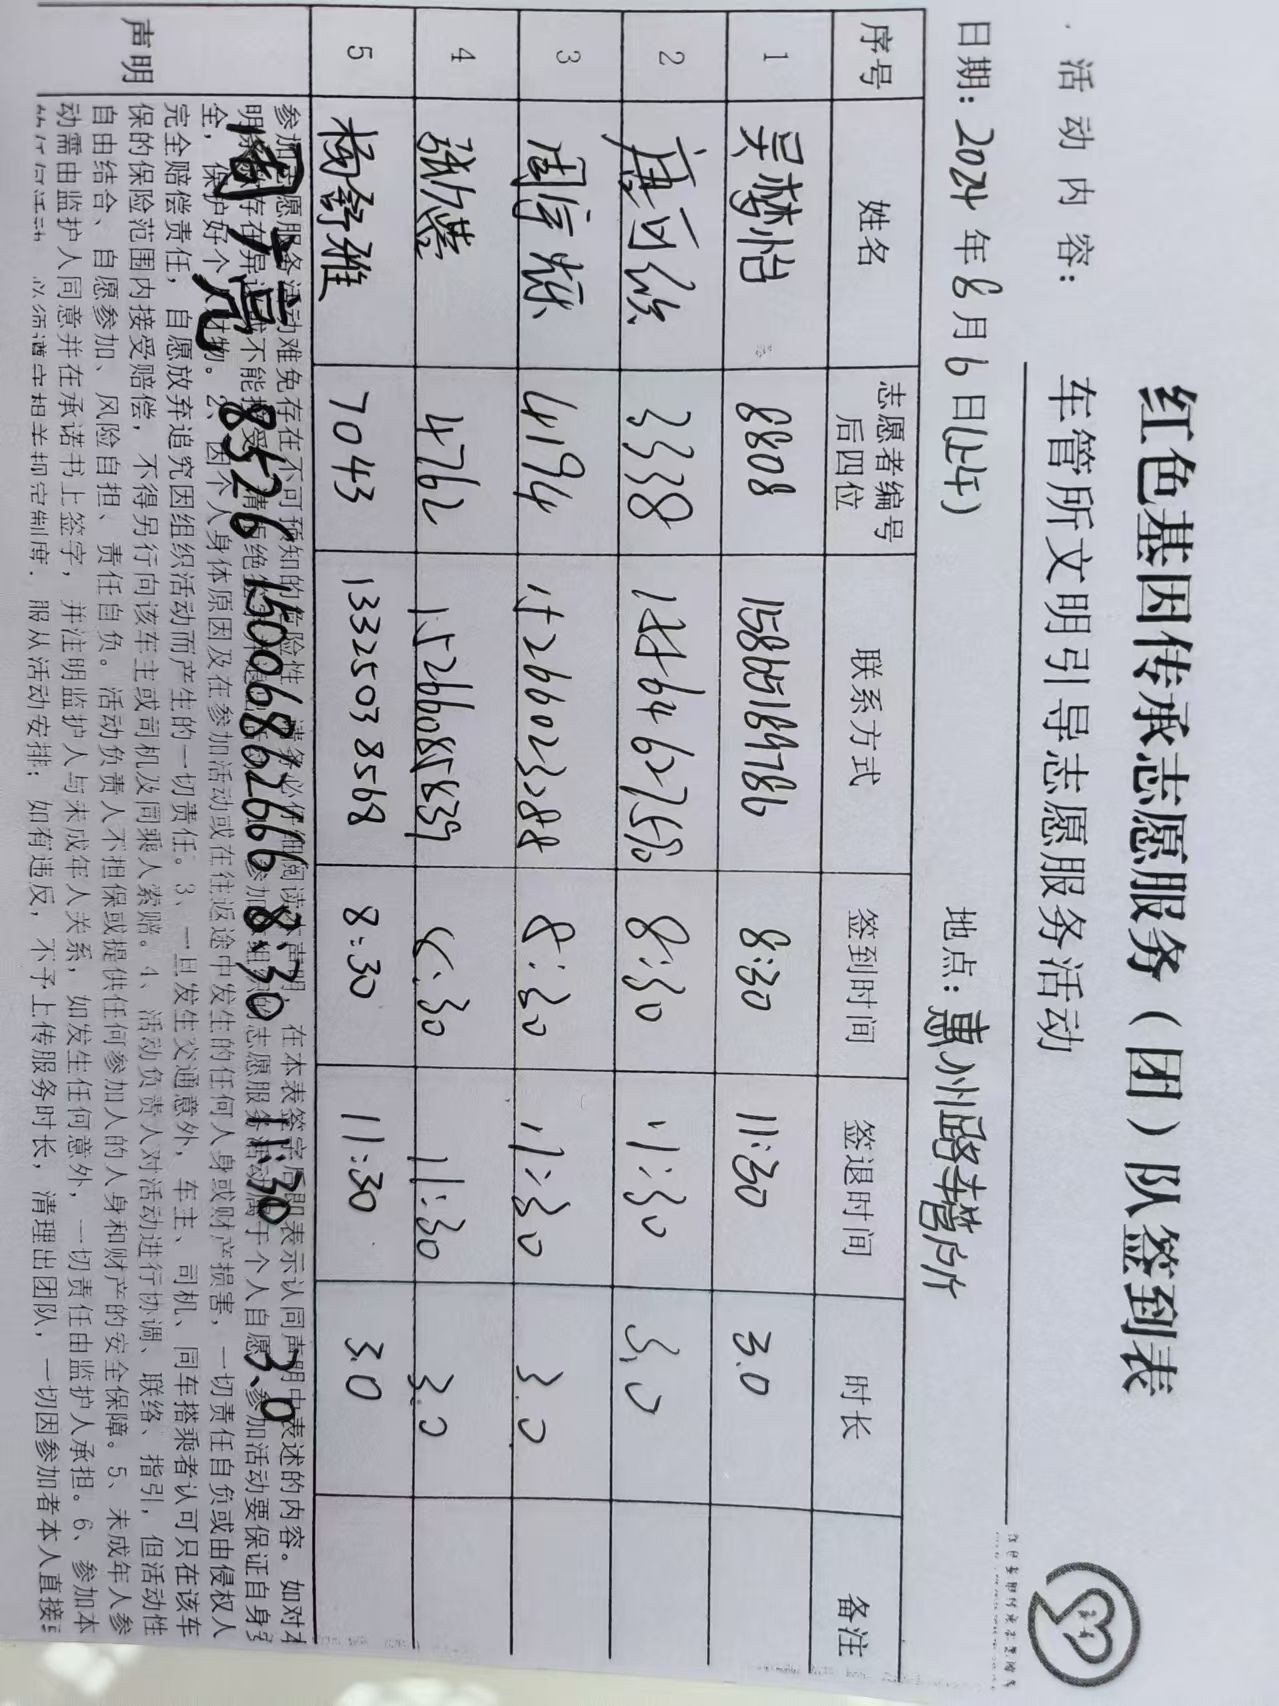 红色基因传承志愿服务（团）队签到表
活动内容： 车管所文明引导志愿服务活动
日期：2024年8月6日(上午) 地点：惠州路车管所
序号 姓名 志愿者编号后四位 联系方式 签到时间 签退时间 时长 备注
1 吴梦怡 8808 15865189786 8:30 11:30 3.0
2 唐可欣 3338 8:30 11:30 3.0
3 周宇烁 4194 15266023288 8:30 11:30 3.0
4 4762 15266085839 8:30 11:30 3.0
5 杨舒雅 7043 13325038568 8:30 11:30 3.0
周亮 8526 15006862666 8:30 11:30 3.0
声明
参加志愿服务活动难免存在不可预知的危险性，请务必仔细阅读本声明，在本表签字后即表示认同声明中表述的内容。如对本
全，保护好个人财物。2、因个人身体原因及在参加活动或在往返途中发生的任何人身或财产损害，一切责任自负或由侵权人
完全赔偿责任，自愿放弃追究因组织活动而产生的一切责任。3、一旦发生交通意外，车主、司机、同车搭乘者认可只在该车
保的保险范围内接受赔偿，不得另行向该车主或司机及同乘人索赔。4、活动负责人对活动进行协调、联络、指引，但活动性
自由结合、自愿参加、风险自担、责任自负。活动负责人不担保或提供任何参加人的人身和财产的安全保障。5、未成年人参
动需由监护人同意并在承诺书上签字，并注明监护人与未成年人关系，如发生任何意外，一切责任由监护人承担。6、参加本
服从活动安排；如有违反，不予上传服务时长，清理出团队，一切因参加者本人直接